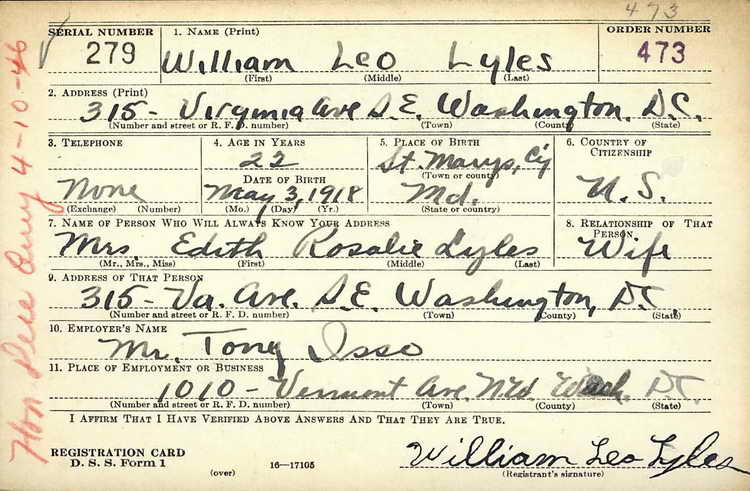 473
SERIAL NUMBER
279
1. NAME (Print)
ORDER NUMBER
473
William Leo Lyles
(First) (Middle) (Last)
2. ADDRESS (Print)
315- Virginia Ave S.E. Washington. D.C.
(Number and street or R. F. D. number) (Town) (County) (State)
3. TELEPHONE
4. AGE IN YEARS
5. PLACE OF BIRTH
6. COUNTRY OF CITIZENSHIP
22
St. Marys, Cy
(Town or county)
DATE OF BIRTH
None
May 3, 1918
Md.
U.S.
(Exchange) (Number)
(Mo.) (Day) (Yr.)
(State or country)
7. NAME OF PERSON WHO WILL ALWAYS KNOW YOUR ADDRESS
8. RELATIONSHIP OF THAT PERSON
Mrs. Edith Rosalie Lyles
Wife
(Mr., Mrs., Miss) (First) (Middle) (Last)
9. ADDRESS OF THAT PERSON
315- Va. Ave. S.E. Washington, D.C.
(Number and street or R. F. D. number) (Town) (County) (State)
10. EMPLOYER'S NAME
Mr. Tony Isso
11. PLACE OF EMPLOYMENT OR BUSINESS
1010- Vermont Ave. Wash. D.C.
(Number and street or R. F. D. number) (Town) (County) (State)
I AFFIRM THAT I HAVE VERIFIED ABOVE ANSWERS AND THAT THEY ARE TRUE.
REGISTRATION CARD
D. S. S. Form 1
(over)
16—17105
William Leo Lyles
(Registrant's signature)
Hon 4-10-46